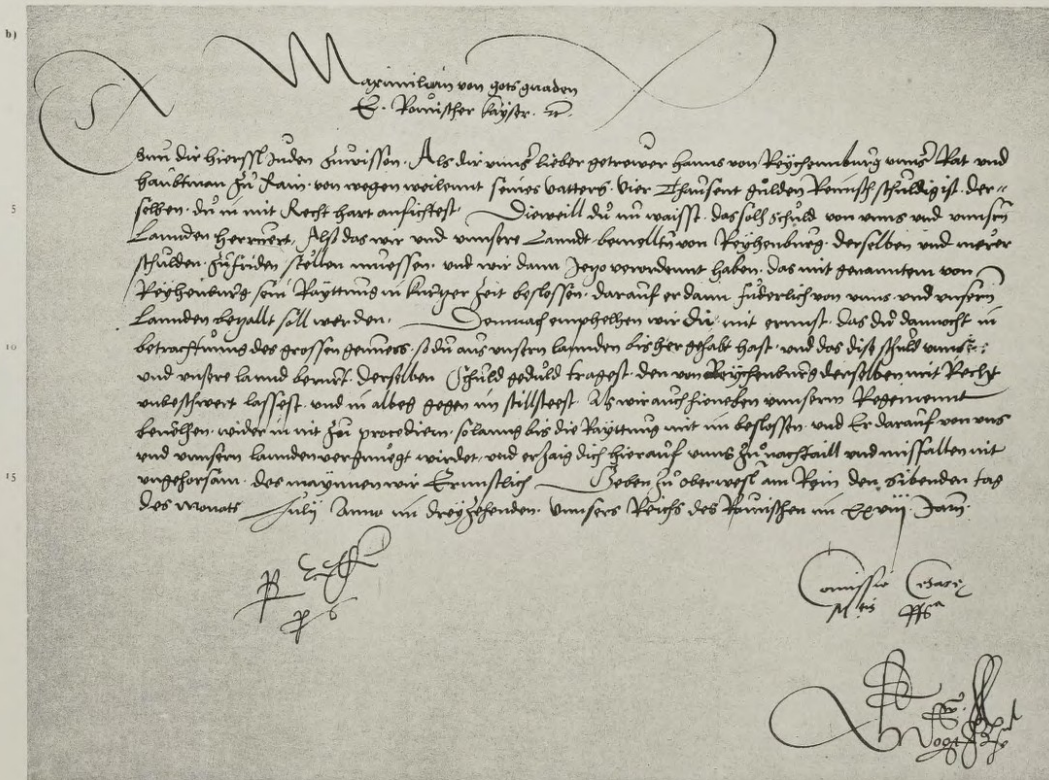 b)
Maximilian von gots gnaden
E. Römischer Kayser. etc.
dir Hierssl Juden zuwissen. Als dir unns lieber getrewer Hanns von Reychemburg unns Rat und
haubtman zu Rain. von wegen weilennt seines vatters. vier Thausent gulden Reinisch schuldig ist. der=
5 selben. du in mit Recht hart anfichtest Dieweill du nu waisst. das solh schuld von unns und unnsern
Lannden herruert, Also das wir und unnsere Lanndt bemelltn von Reyhenburg. derselben und merer
schulden. zufriden stellen muessen. und wir dann Jetzo verordennt haben. das mit genanntem von
Reyhenburg sein Rayttung in kurtzer zeit beslossen. darauf er dann furderlich von unns. und unsern
Lannden betzallt soll werden. Demnach emphelhen wir dir. mit ernnst. das du dannocht in
10 betrachtnung des grossen gewinns. so du aus unsern lannden bisher gehabt hast. und das dise schuld unns
und unsere lannd berurt. derselben Schuld geduld tragest. den von Reychenburg derselben mit Recht
unbeschwert lassest. und in albeg gegen im stillsteest. Als wir auch hieneben unnserm Regiment
bevelhen. wider in nit zu procediern. solanng bis die Rayttung mit im beslossen. und Er darauf von uns
und unnsern lannden vergnuegt wirdet. und erzaig dich hierauf unns zu nachtaill und missfallen nit
15 ungehorsam. des maynnen wir Ernnstlich Geben zu oberwesl am Rein den sibenden tag
des monats Julij Anno im dreyzehenden. unnsers Reichs des Römischen im xxviij Jarn.
Comissio Cesaree